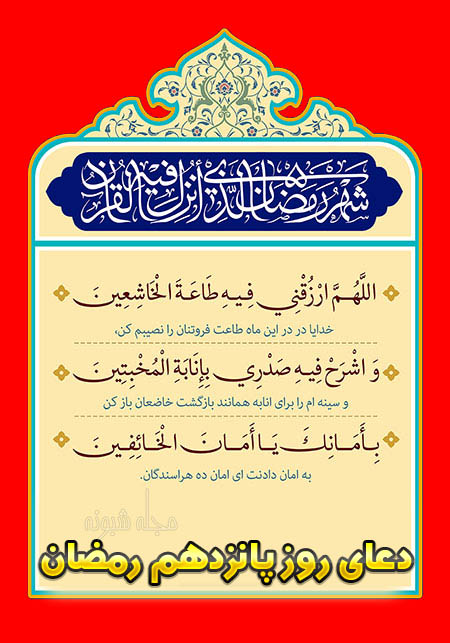 شهر رمضان الذي أنزل فيه القرآن
اللَّهُمَّ ارْزُقْنِي فِيهِ طَاعَةَ الْخَاشِعِينَ
خدایا در در این ماه طاعت فروتنان را نصیبم کن،
وَ اشْرَحْ فِيهِ صَدْرِي بِإِنَابَةِ الْمُخْبِتِينَ
و سینه ام را برای انابه همانند بازگشت خاضعان باز کن
بِأَمَانِكَ يَا أَمَانَ الْخَائِفِينَ
به امان دادنت ای امان ده هراسندگان.
مجله شبونه
دعای روز پانزدهم رمضان